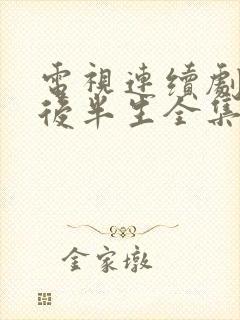 電視連續劇
後半生全集
金家墩